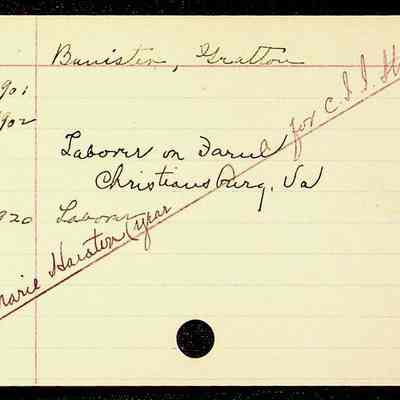 Banister, Gratton
901
902
Laborer on Farm
Christiansburg, Va
920 Laborer
Marie Hairston (year for C. I. I.